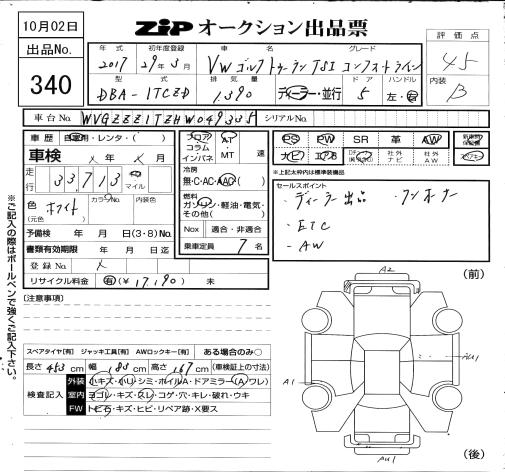 10月02日
ZIP オークション出品票
出品No.
340
年式 初年度登録 車名 グレード
2017 29年3月 VWゴルフトゥーラン TSI コンフォートライン
型式 排気量 ドア ハンドル
DBA-1TCZD 1,390 ディーラー・並行 5 左・右
評価点
4.5
内装
B
車台No. WVGZZZ1TZHW049335 シリアルNo.
車歴 自家用・レンタ・( )
車検 × 年 × 月
走行 33,713 マイル
色 (元色) ホワイト カラーNo. 内装色
予備検 年 月 日(3・8)No.
書類有効期限 年 月 日迄
登録No. ×
リサイクル料金 有(¥17,190) 未
フロア コラム インパネ AT MT 速
冷房
無・C・AC・AAC
燃料
ガソリン・軽油・電気・その他( )
Nox 適合・非適合
乗車定員 7名
PS PW SR 革 AW
ナビ エアB 社外ナビ 社外AW
新車時保証書
スペアキー
※上記太枠内は標準装備品
セールスポイント
・ディーラー出品 ・ワンオーナー
・ETC
・AW
(注意事項)
※ご記入の際はボールペンで強くご記入下さい。
スペアタイヤ[有] ジャッキ工具[有] AWロックキー[有] ある場合のみ〇
長さ 453 cm 幅 183 cm 高さ 167 cm (車検証上の寸法)
検査記入
外装 小キズ・小U・シミ・ホイルA・ドアミラー(A ワレ)
室内 ヨゴレ・キズ・スレ・コゲ・穴・キレ・破れ・ウキ
FW トビ石・キズ・ヒビ・リペア跡・X要ス
(前)
A2
AU1
A1
AU1
(後)